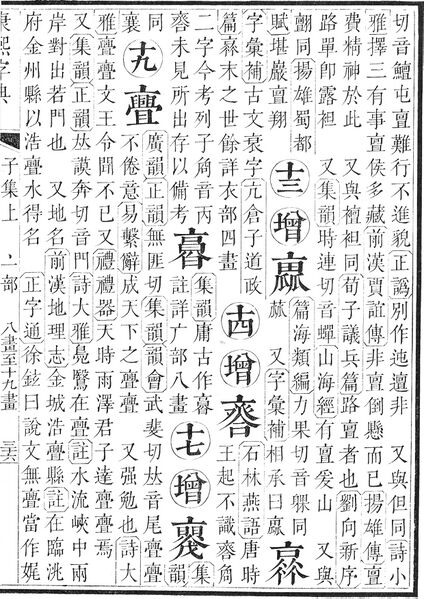 切音鱣屯亶難行不進貌正譌別作迍邅非　又與但同詩小
雅擇三有事亶侯多藏前漢賈誼傳非亶倒懸而已揚雄傳亶
費精神於此　又與襢袒同荀子議兵篇路亶者也劉向新序
路單卽露袒　又集韻時連切音蟬山海經有亶爰山　又與
同揚雄蜀都
賦堪巖亶翔
十三增
篇海類編力果切音躶同
又字彙補相承曰
字彙補古文袞字亢倉子道政
篇末之世餘詳衣部四畫
十四增
石林燕語唐時
王起不識
二字今考列子音丙
未見所出存以備考
集韻庸古作
註詳广部八畫
十七增
集韻
同
襄
十九
亹
廣韻正韻無匪切集韻韻會武斐切𠀤音尾亹亹
不倦意易繫辭成天下之亹亹　又強勉也詩大
雅亹亹文王令聞不已又禮禮器天時雨澤君子達亹亹焉
又集韻正韻𠀤謨奔切音門詩大雅鳧鷖在亹註水流峽中兩
岸對出若門也　又地名前漢地理志金城浩亹縣註在臨洮
府金州縣以浩亹水得名　正字通徐鉉曰說文無亹當作娓
康熙字典　子集上　亠部　八畫至十九畫　三六